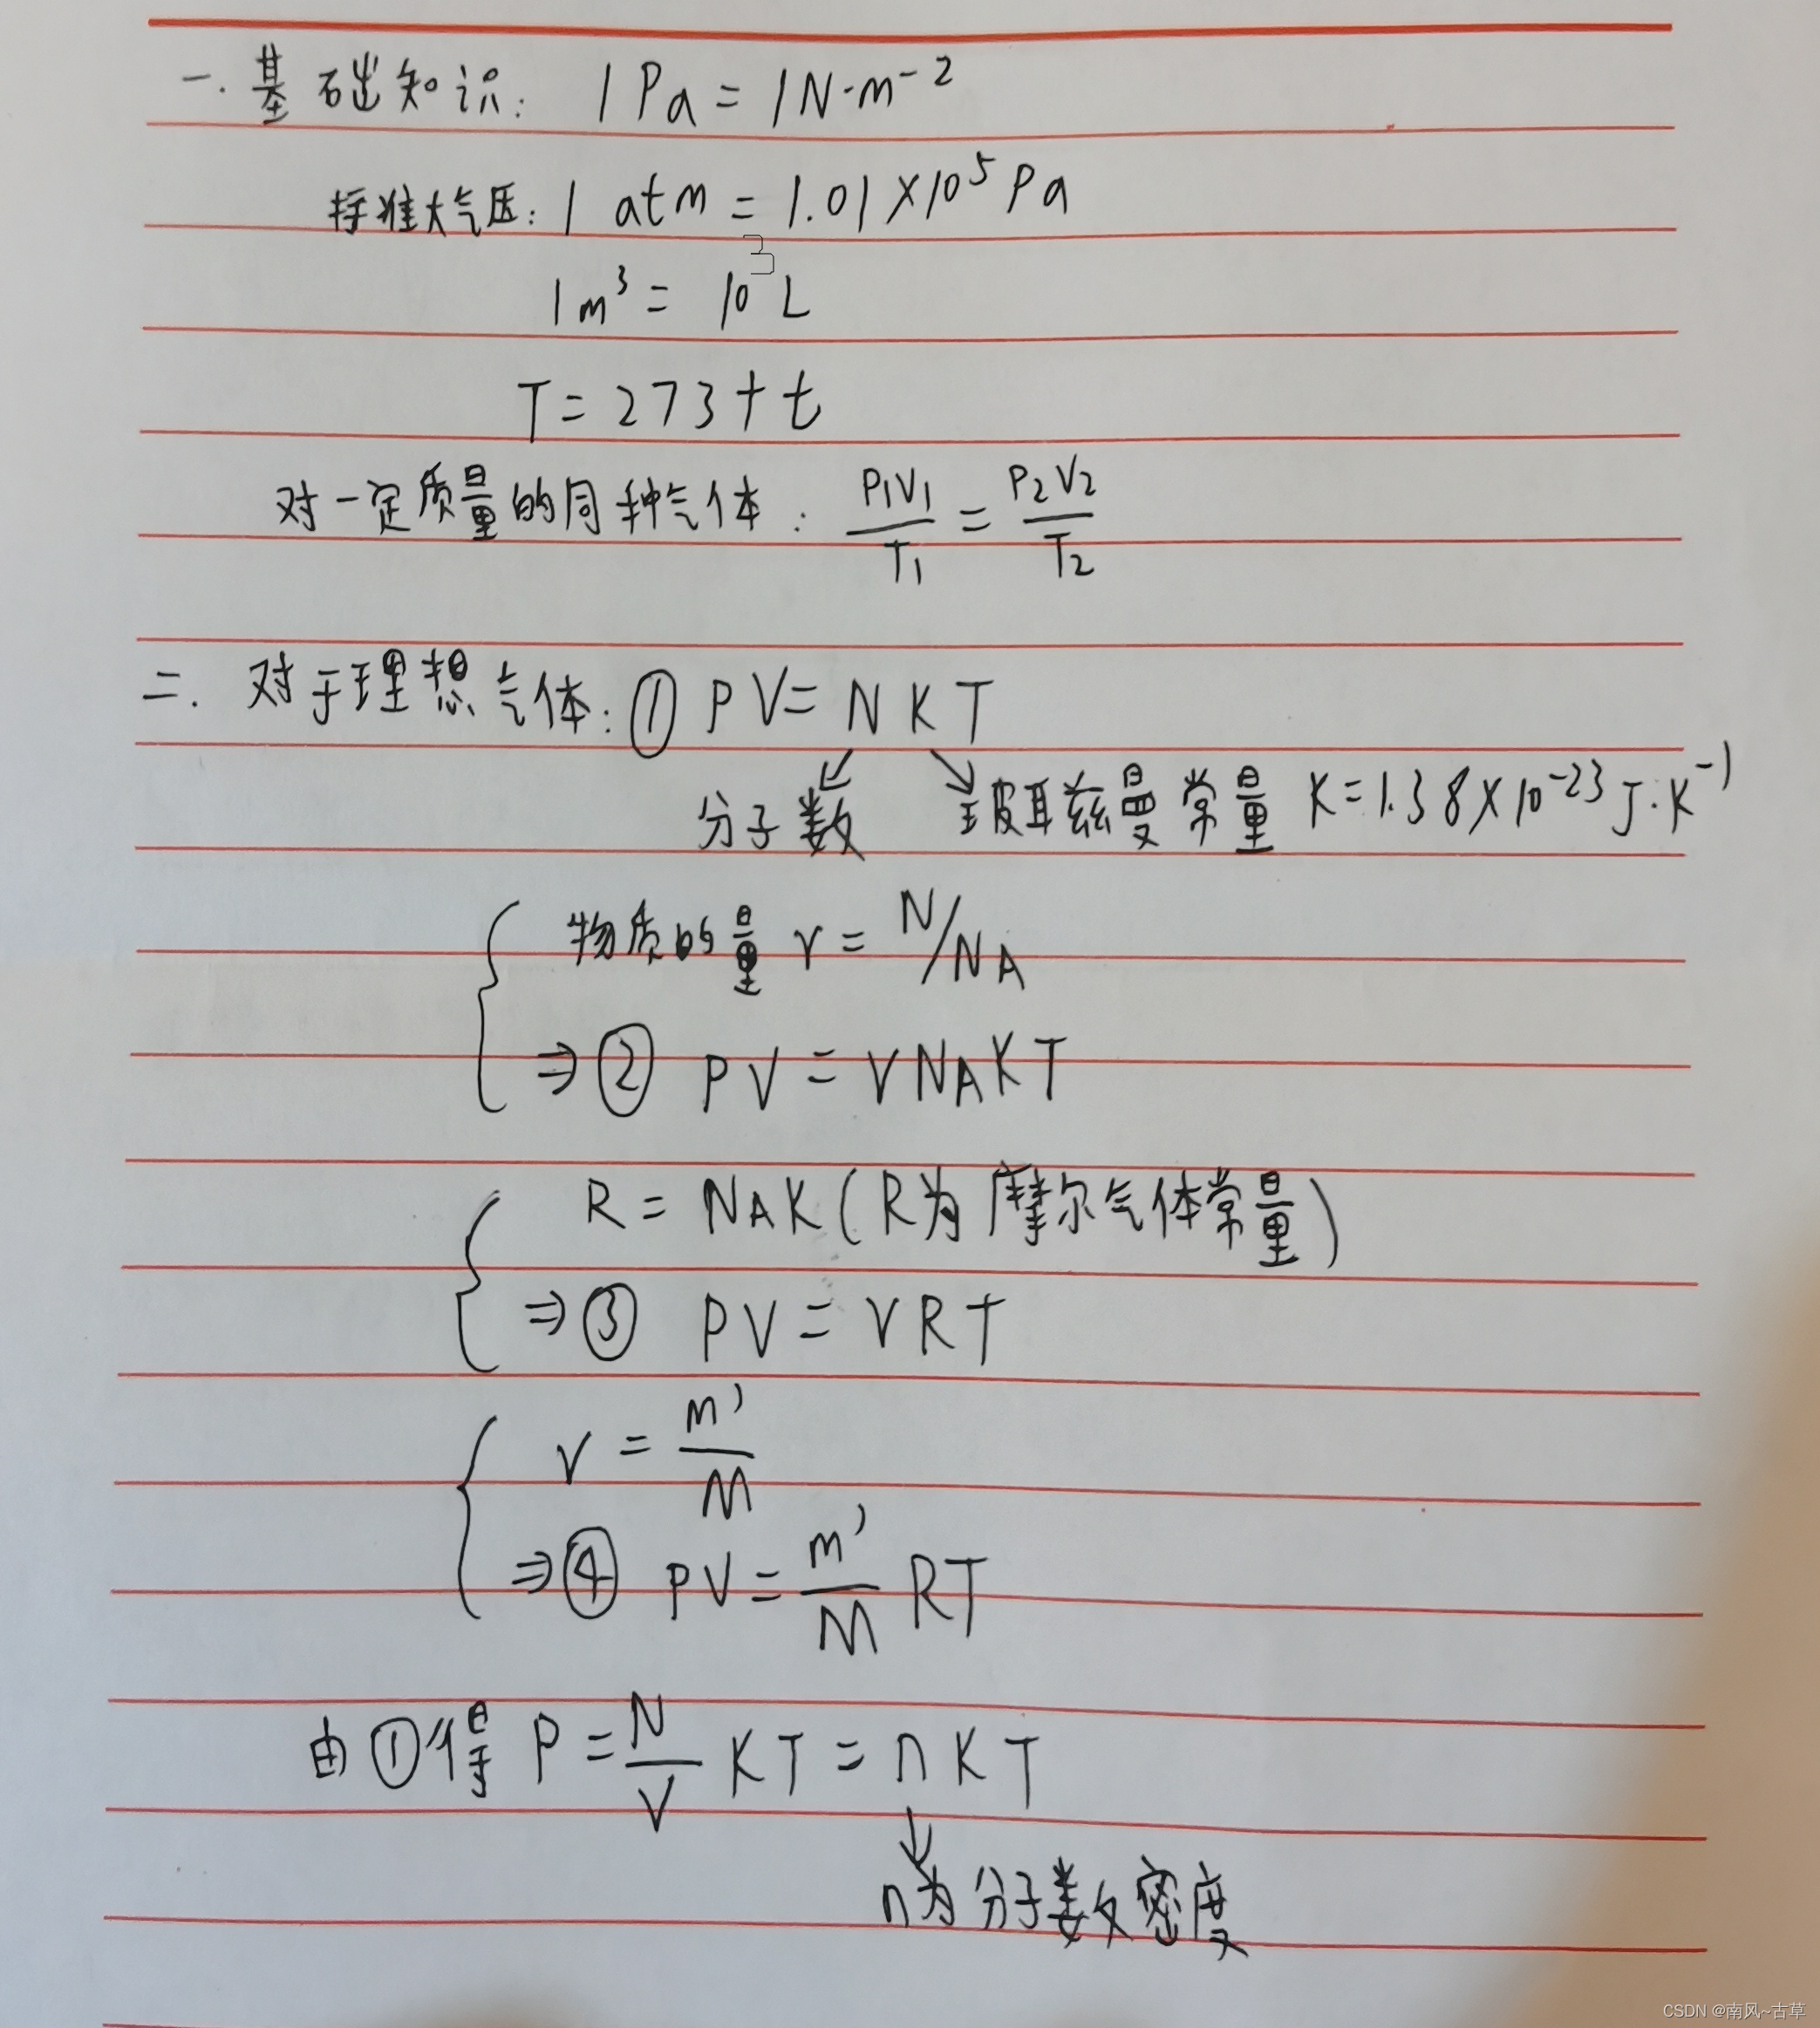 一.基础知识: 1Pa=1N·m⁻²
标准大气压: 1 atm=1.01×10⁵Pa
1m³=10³L
T=273+t
对一定质量的同种气体: P₁V₁/T₁=P₂V₂/T₂
二.对于理想气体:① PV=NKT
分子数 玻耳兹曼常量 K=1.38×10⁻²³J·K⁻¹
物质的量 ν=N/NA
⇒② PV=νNAKT
R=NAK(R为摩尔气体常量)
⇒③ PV=νRT
ν=m'/M
⇒④ PV=m'/M RT
由①得 P=N/V KT=nKT
n为分子数密度
CSDN @南风~古草